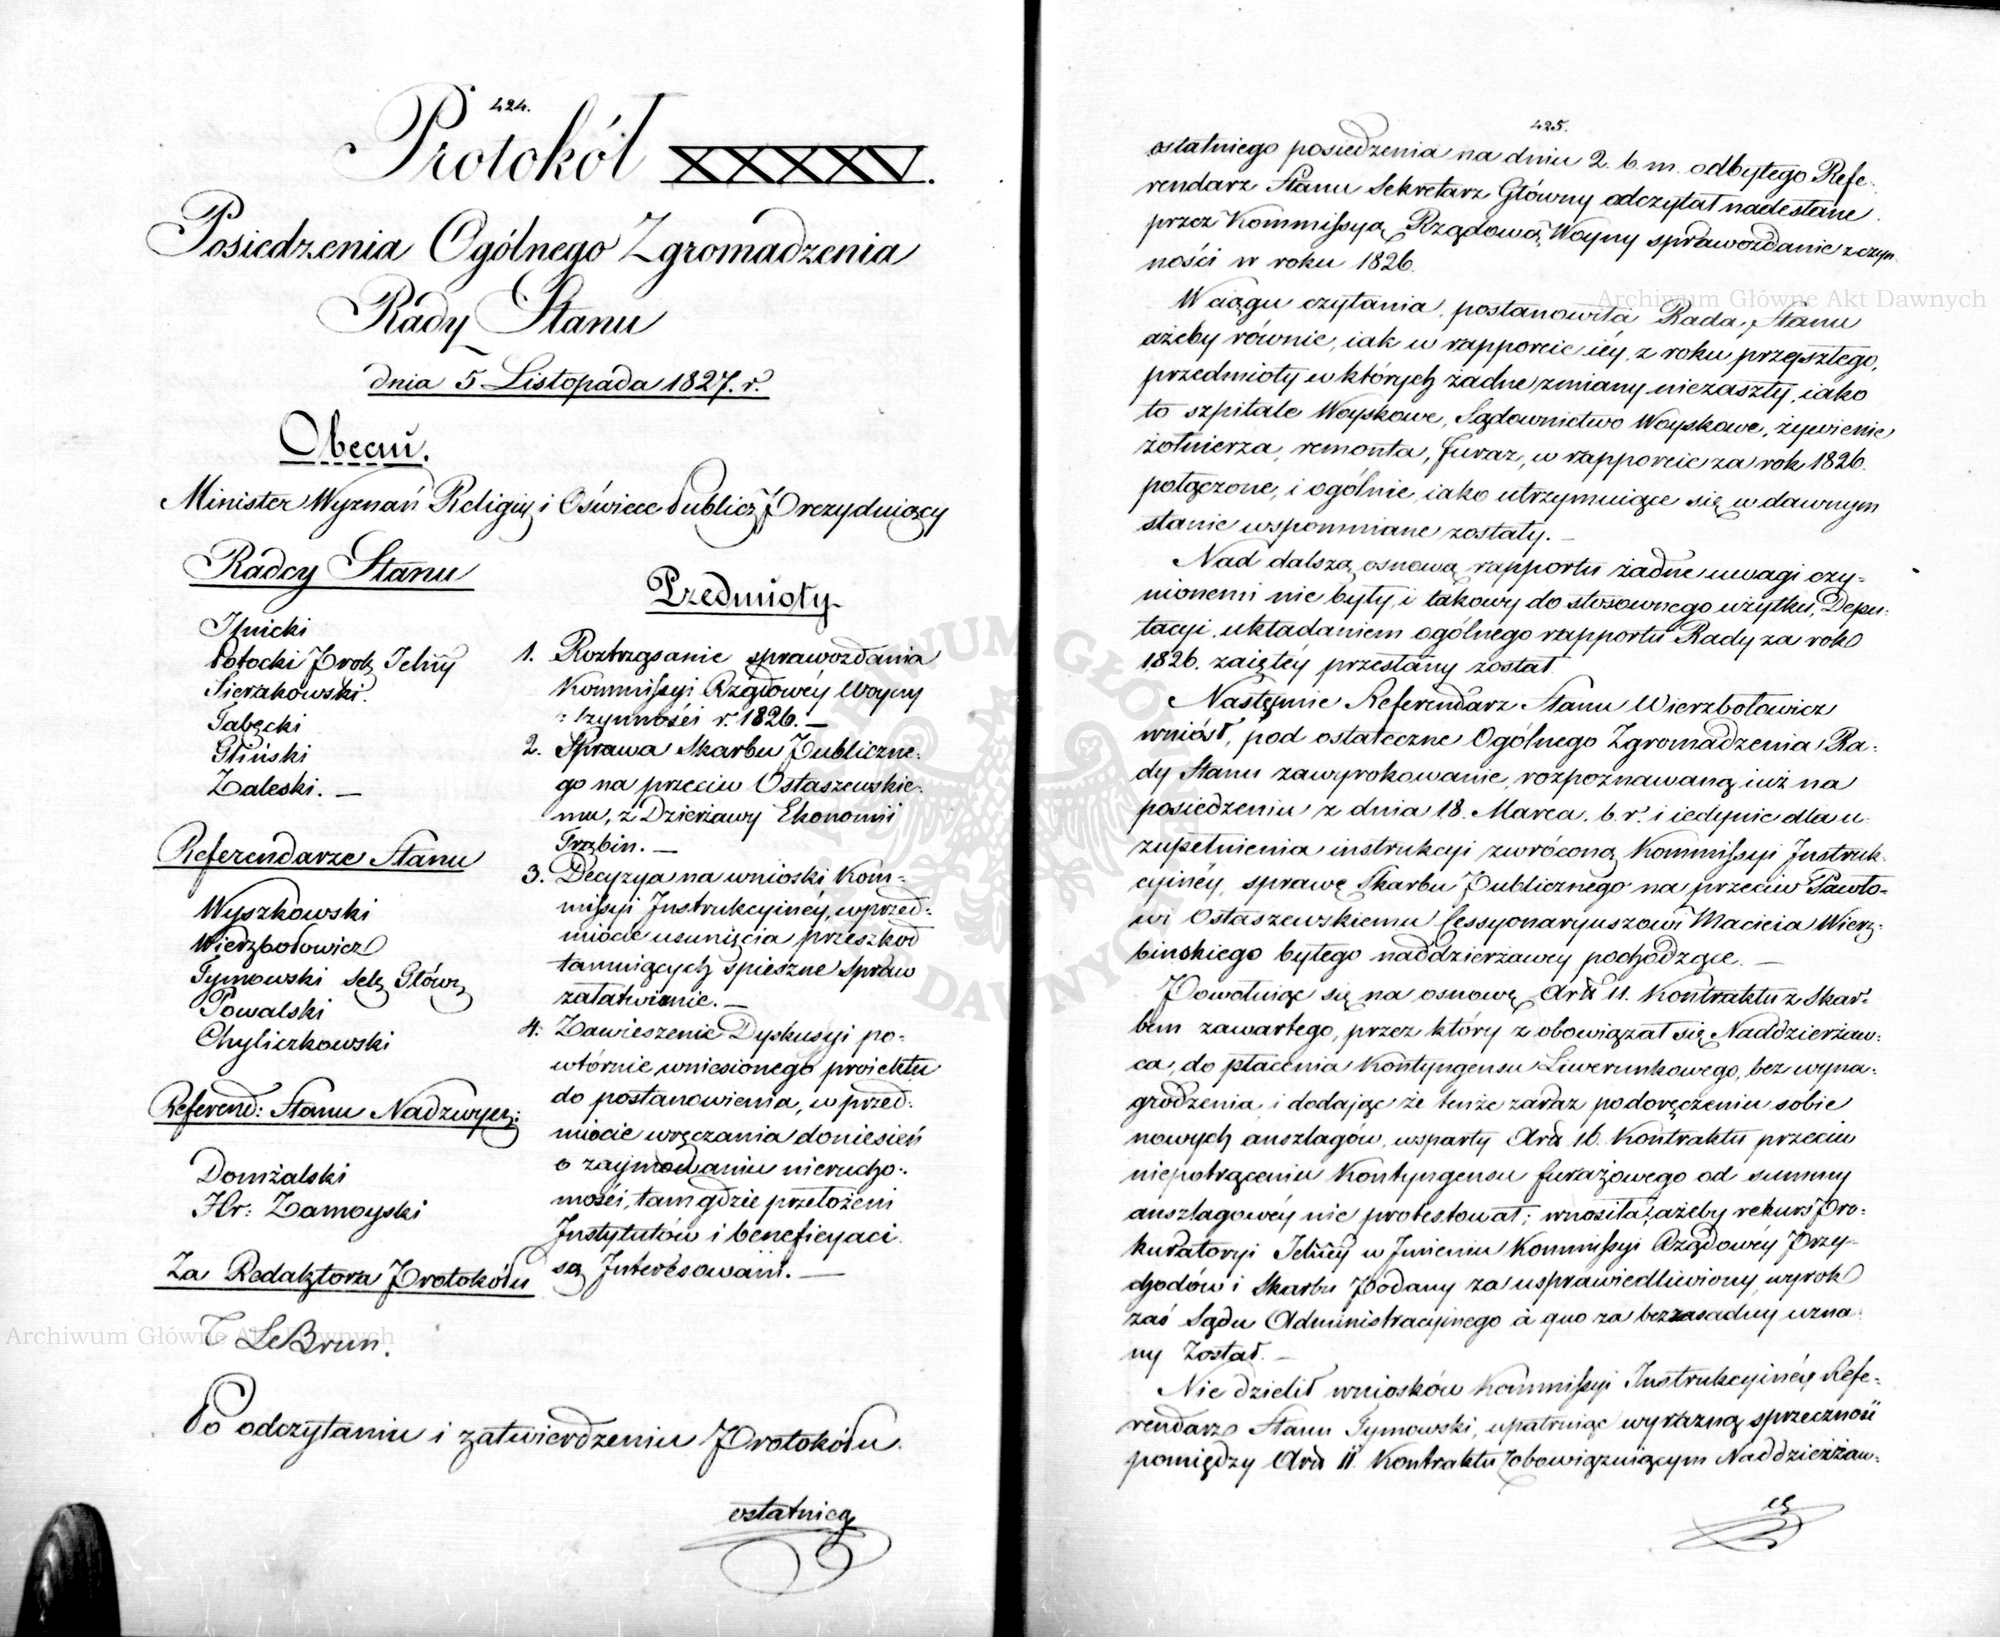 424.
Protokół XXXXV.
Posiedzenia Ogólnego Zgromadzenia
Rady Stanu
dnia 5 Listopada 1827. r.
Obecni.
Minister Wyznań Religiy i Oświece Publicz Prezyduiący
Radcy Stanu
Ilnicki
Potocki Prok Jelny
Sierakowski.
Tabęcki
Gliński
Zaleski. —
Referendarze Stanu
Wyszkowski
Wierzbołowicz
Tymowski Sek Główy
Powalski
Chyliczkowski
Referend: Stanu Nadzwycz:
Domżalski
Hr: Zamoyski
Za Redaktora Protokółu
T LeBrun.
Przedmioty
1. Roztrząsanie sprawozdania
Kommissyi Rządowéy Woyny
z czynności r. 1826. —
2. Sprawa Skarbu Publiczne-
go na przeciw Ostaszewskie-
mu, z Dzierżawy Ekonomii
Trąbin. —
3. Decyzya na wnioski Kom-
missyi Instrukcyinéy, w przed-
miocie usunięcia przeszkod
tamuiących spieszne spraw
załatwienie. —
4. Zawieszenie Dyskusyi po-
wtórnie wniesionego proiektu
do postanowienia, w przed-
miocie wręczania doniesień
o zaymowaniu nierucho-
mości, tam gdzie przełożeni
Instytutów i beneficyaci
są Interesowani. —
Po odczytaniu i zatwierdzeniu Protokółu
ostatnieg
425.
ostatniego posiedzenia na dniu 2. b. m. odbytego Refe-
rendarz Stanu Sekretarz Główny odczytał nadesłane
przez Kommissyą Rządową Woyny sprawozdanie z czyn-
ności w roku 1826.
W ciągu czytania, postanowiła Rada Stanu
ażeby równie, iak w rapporcie iéy z roku przeszłego,
przedmioty w których żadne zmiany niezaszły, iako
to szpitale Woyskowe, Sądownictwo Woyskowe, żywienie
żołnierza, remonta, furaż, w rapporcie za rok 1826.
połączone, i ogólnie, iako utrzymuiące się w dawnym
stanie wspomniane zostały. —
Nad dalszą osnową rapportu żadne uwagi czy-
nionemi nie były, i takowy do stosownego użytku, Depu-
tacyi układaniem ogólnego rapportu Rady za rok
1826. zaiętéy przesłany został
Następnie Referendarz Stanu Wierzbołowicz
wniósł, pod ostateczne Ogólnego Zgromadzenia Ra-
dy Stanu zawyrokowanie, rozpoznawaną iuż na
posiedzeniu z dnia 18. Marca. b. r. i iedynie dla u-
zupełnienia instrukcyi zwróconą Kommissyi Instruk-
cyinéy, sprawę Skarbu Publicznego na przeciw Pawło-
wi Ostaszewskiemu Cessyonaryuszowi Macieia Wierz-
binskiego byłego naddzierżawcy pochodzące. —
Powołuiąc się na osnowę Artu 11. Kontraktu z Skar-
bem zawartego, przez który zobowiązał się Naddzierżaw-
ca, do płacenia Kontyngensu Liwerunkowego, bez wyna-
grodzenia, i dodając że tenże zaraz po doręczeniu sobie
nowych anszlagów, wsparty Artu 16. Kontraktu przeciw
niepotrąceniu Kontyngensu furażowego od summy
anszlagowéy nie protestował; wnosiła, ażeby rekurs Pro-
kuratoryi Jelnéy w Jmieniu Kommissyi Rządowéy Przy-
chodów i Skarbu Podany za usprawiedliwiony, wyrok
zaś Sądu Administracyjnego à quo za bezzasadny uzna-
ny Został. —
Nie dzielił wniosków Kommissyi Instrukcyinéy Refe-
rendarz Stanu Tymowski, upatruiąc wyraźną sprzeczność
pomiędzy Artu 11. Kontraktu Zobowiązuiącym Naddzierżaw-
cę
Archiwum Główne Akt Dawnych
Archiwum Główne Akt Dawnych
ARCHIWUM GŁÓWNE AKT DAWNYCH